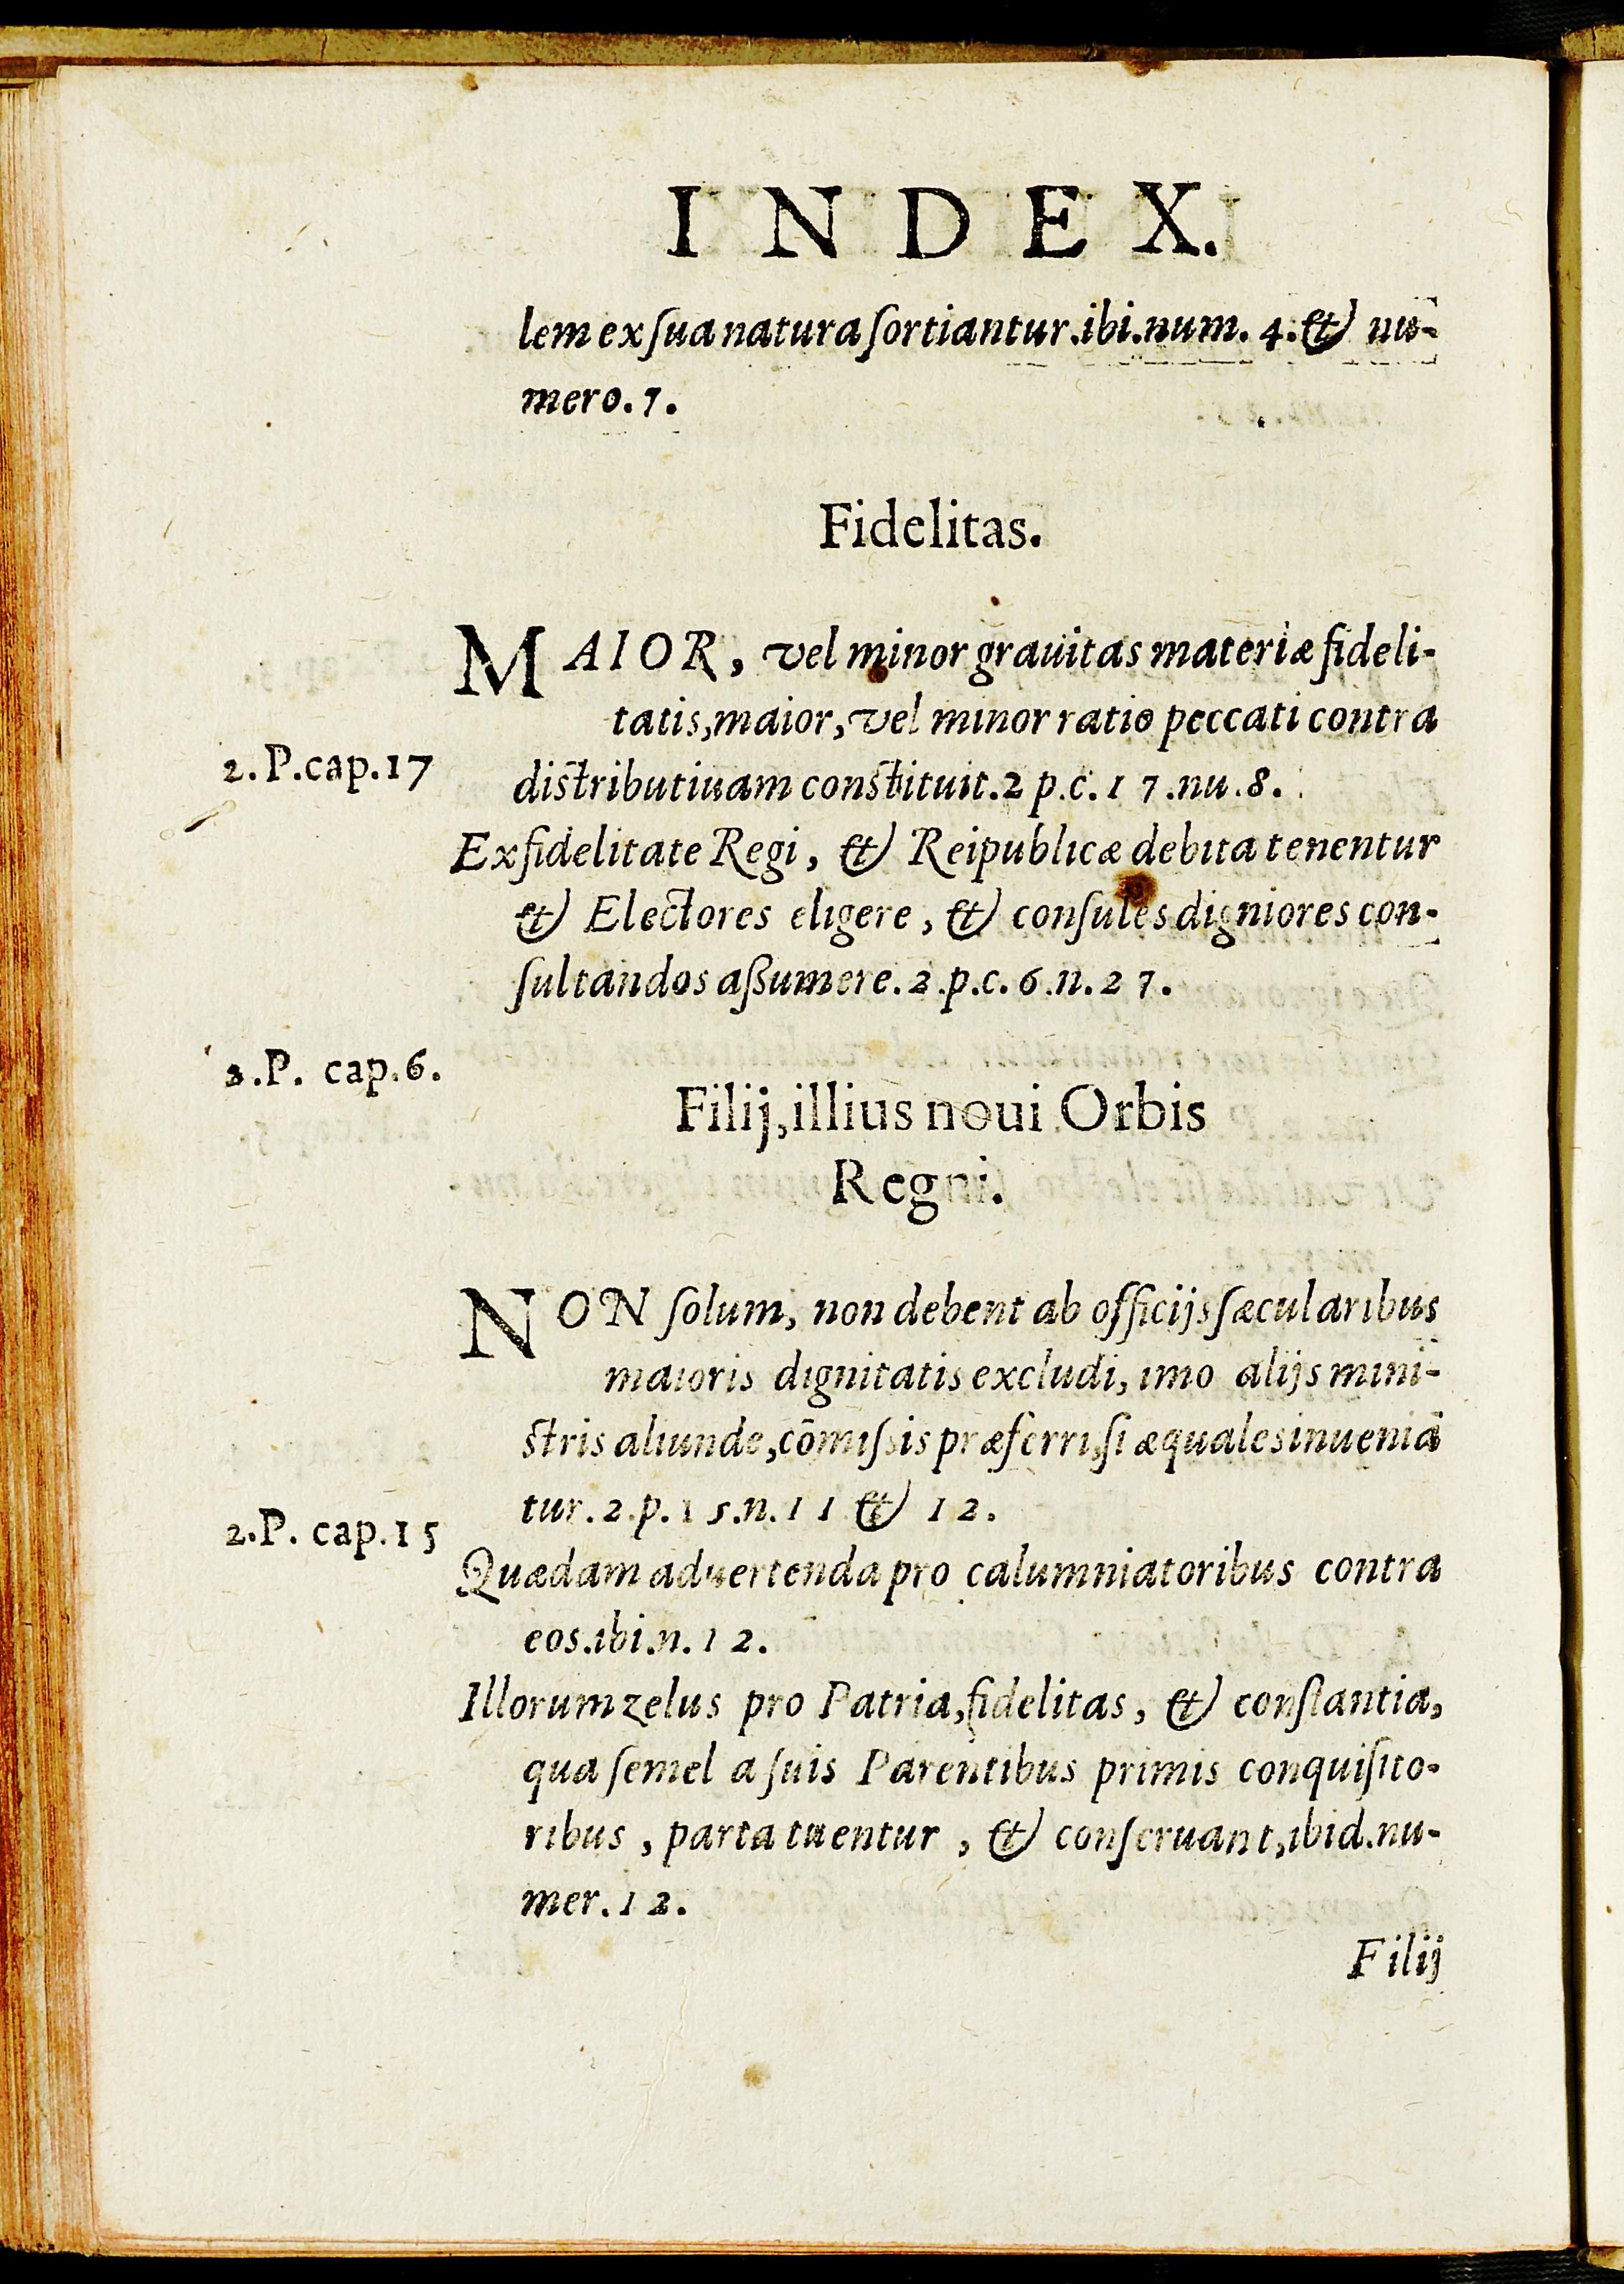 INDEX.
lem ex ſua natura ſortiantur.ibi.num. 4.& nu-
mero. 7.
Fidelitas.
MAIOR, vel minor grauitas materiæ fideli-
tatis,maior, vel minor ratio peccati contra
2. P.cap.17
distributiuam constituit.2 p.c. 17.nu.8.
Ex fidelitate Regi, & Reipublicæ debita tenentur
& Electores eligere, & conſules digniores con-
ſultandos aßumere. 2.p.c. 6.n. 27.
2.P. cap.6.
Filij,illius noui Orbis
Regni.
NON ſolum, non debent ab officijs ſæcularibus
maioris dignitatis excludi, imo alijs mini-
stris aliunde,cōmiſsis præferri,ſi æquales inueniā
tur. 2.p. 15.n. 11 & 12.
2.P. cap.15
Quædam aduertenda pro calumniatoribus contra
eos.ibi.n. 12.
Illorum zelus pro Patria,fidelitas, & conſtantia,
qua ſemel a ſuis Parentibus primis conquiſito-
ribus, parta tuentur, & conſeruant,ibid.nu-
mer. 12.
Filij